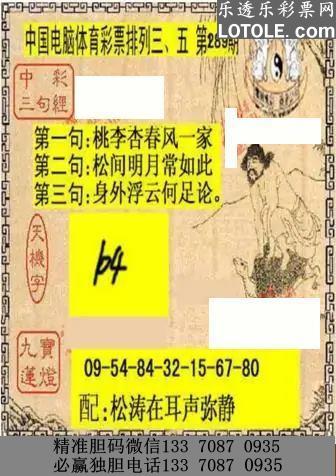 乐透乐彩票网
LOTOLE.COM
中国电脑体育彩票排列三、五 第289期
中彩
三句經
第一句:桃李杏春风一家
第二句:松间明月常如此
第三句:身外浮云何足论。
天機字
九寶
蓮燈
09-54-84-32-15-67-80
配:松涛在耳声弥静
精准胆码微信133 7087 0935
必赢独胆电话133 7087 0935